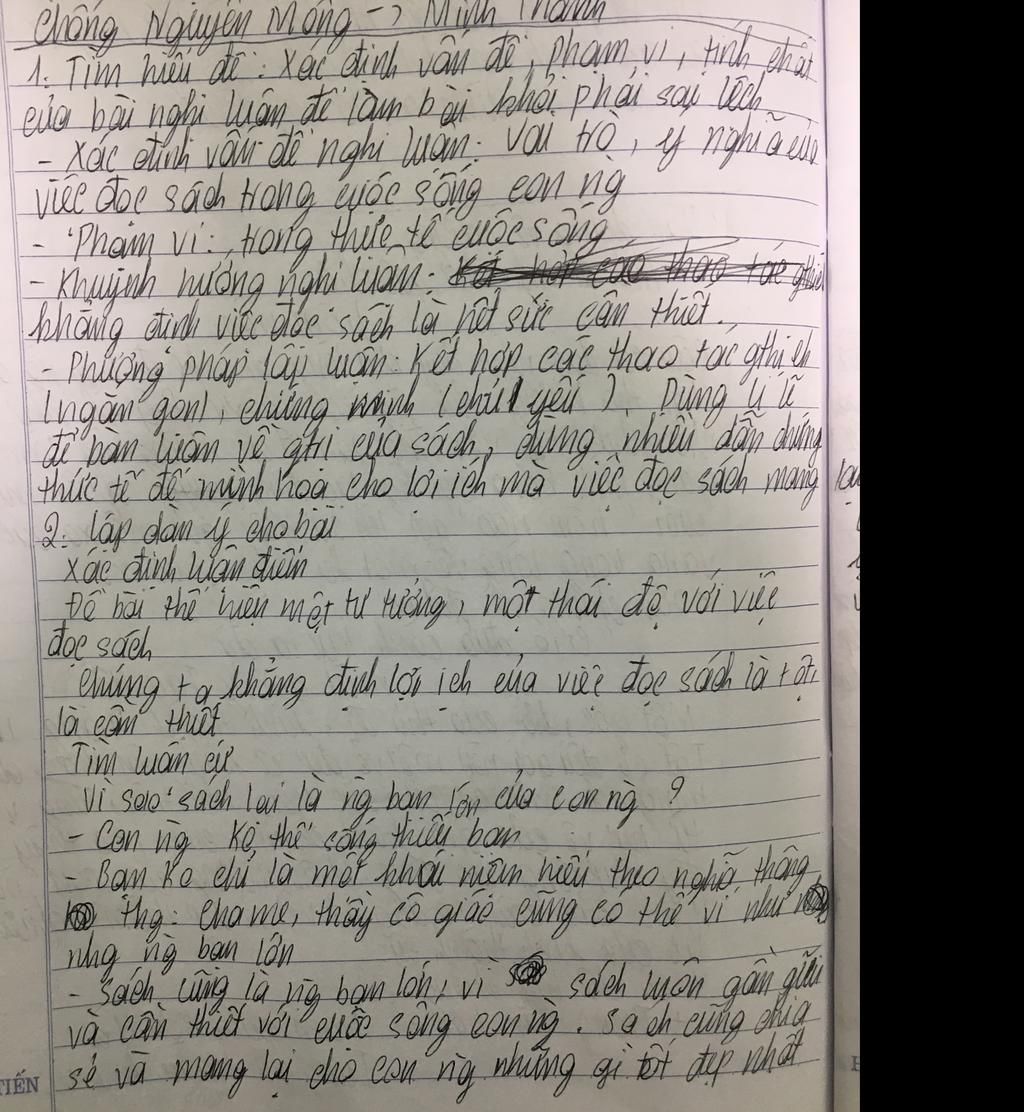 Chống Nguyên Mông -> Minh Thành
1. Tìm hiểu đề: Xác định vấn đề, phạm vi, tính chất
của bài nghị luận để làm bài khỏi phải sai lệch
- Xác định vấn đề nghị luận: Vai trò, ý nghĩa của
việc đọc sách trong cuộc sống con ng
- Phạm vi: trong thực tế cuộc sống
- Khuynh hướng nghị luận:
khẳng định việc đọc sách là hết sức cần thiết.
- Phương pháp lập luận: Kết hợp các thao tác gthích
(ngắn gọn), chứng minh (chủ yếu). Dùng lí lẽ
để bàn luận về gtrị của sách, dùng nhiều dẫn chứng
thực tế để minh hoạ cho lợi ích mà việc đọc sách mang lại
2. lập dàn ý cho bài
Xác định luận điểm
Đề bài thể hiện một tư tưởng, một thái độ với việc
đọc sách
Chúng ta khẳng định lợi ích của việc đọc sách là tốt,
là cần thiết
Tìm luận cứ
Vì sao sách lại là ng bạn lớn của con ng ?
- Con ng ko thể sống thiếu bạn
- Bạn ko chỉ là một khái niệm hiểu theo nghĩa thông
thg: Cha mẹ, thầy cô giáo cũng có thể ví như
nhg ng bạn lớn
- Sách cũng là ng bạn lớn, vì sách luôn gần gũi
và cần thiết với cuộc sống con ng. Sách cũng chia
sẻ và mang lại cho con ng những gì tốt đẹp nhất
TIẾN